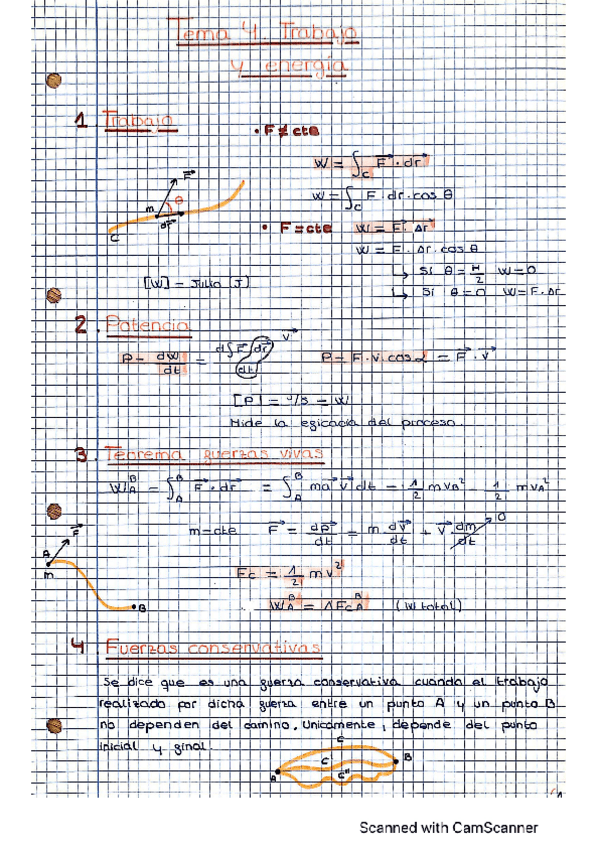 Tema 4. Trabajo
y energía
1 Trabajo
• F ≠ cte
W = ∫c F⃗ · dr⃗
W = ∫c F · dr · cos θ
F⃗
m
θ
dr⃗
C
• F = cte W = F⃗ · Δr⃗
W = F · Δr · cos θ
↳ Si θ = π/2 W = 0
↳ Si θ = 0 W = F · Δr
[W] = Julio (J)
2. Potencia
P = dW/dt = d∫F⃗ dr⃗/dt v⃗ P = F · v · cos α = F⃗ · v⃗
[P] = J/s = W
Mide la eficacia del proceso.
3. Teorema fuerzas vivas
W_A^B = ∫_A^B F⃗ · dr⃗ = ∫_A^B ma⃗ v⃗ dt = 1/2 m v_B² - 1/2 m v_A²
m = cte F⃗ = dp⃗/dt = m dv⃗/dt + v⃗ dm/dt 0
A
F⃗
m
B
Ec = 1/2 m v²
W_A^B = ΔEc_A^B (W total)
4 Fuerzas conservativas
Se dice que es una fuerza conservativa cuando el trabajo
realizado por dicha fuerza entre un punto A y un punto B
no dependen del camino. Unicamente, depende del punto
inicial y final.
C
C'
C''
A
B
Scanned with CamScanner